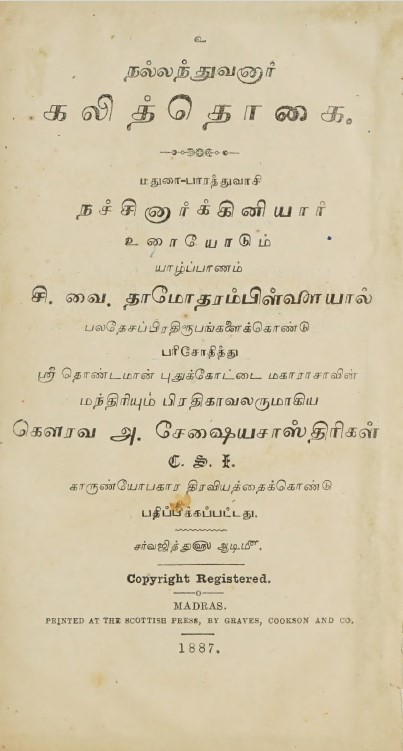 உ
நல்லந்துவனார்
கலித்தொகை.
மதுரை-பாரத்துவாசி
நச்சினார்க்கினியார்
உரையோடும்
யாழ்ப்பாணம்
சி. வை. தாமோதரம்பிள்ளையால்
பலதேசப்பிரதிரூபங்களைக்கொண்டு
பரிசோதித்து
ஸ்ரீ தொண்டமான் புதுக்கோட்டை மகாராசாவின்
மந்திரியும் பிரதிகாவலருமாகிய
கௌரவ அ. சேஷையசாஸ்திரிகள்
C. S. I.
காருண்யோபகார திரவியத்தைக்கொண்டு
பதிப்பிக்கப்பட்டது.
சர்வஜித்து௵ ஆடிமீ.
Copyright Registered.
MADRAS.
PRINTED AT THE SCOTTISH PRESS, BY GRAVES, COOKSON AND CO.
1887.